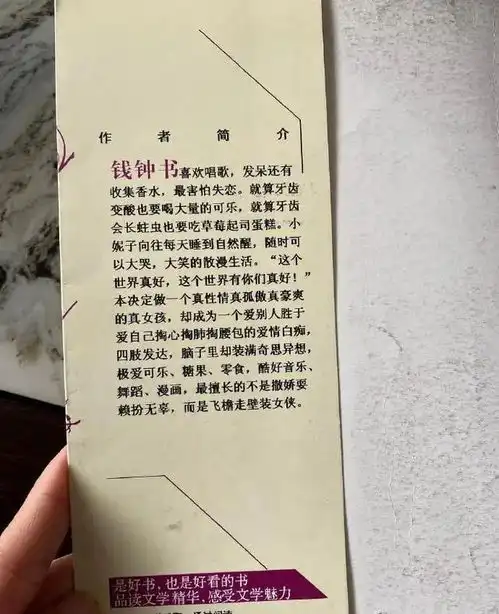 作者简介
钱钟书喜欢唱歌，发呆还有
收集香水，最害怕失恋。就算牙齿
变酸也要喝大量的可乐，就算牙齿
会长蛀虫也要吃草莓起司蛋糕。小
妮子向往每天睡到自然醒，随时可
以大哭，大笑的散漫生活。“这个
世界真好，这个世界有你们真好！”
本决定做一个真性情真孤傲真豪爽
的真女孩，却成为一个爱别人胜于
爱自己掏心掏肺掏腰包的爱情白痴，
四肢发达，脑子里却装满奇思异想，
极爱可乐、糖果、零食，酷好音乐、
舞蹈、漫画，最擅长的不是撒娇耍
赖扮无辜，而是飞檐走壁装女侠。
是好书、也是好看的书
品读文学精华、感受文学魅力